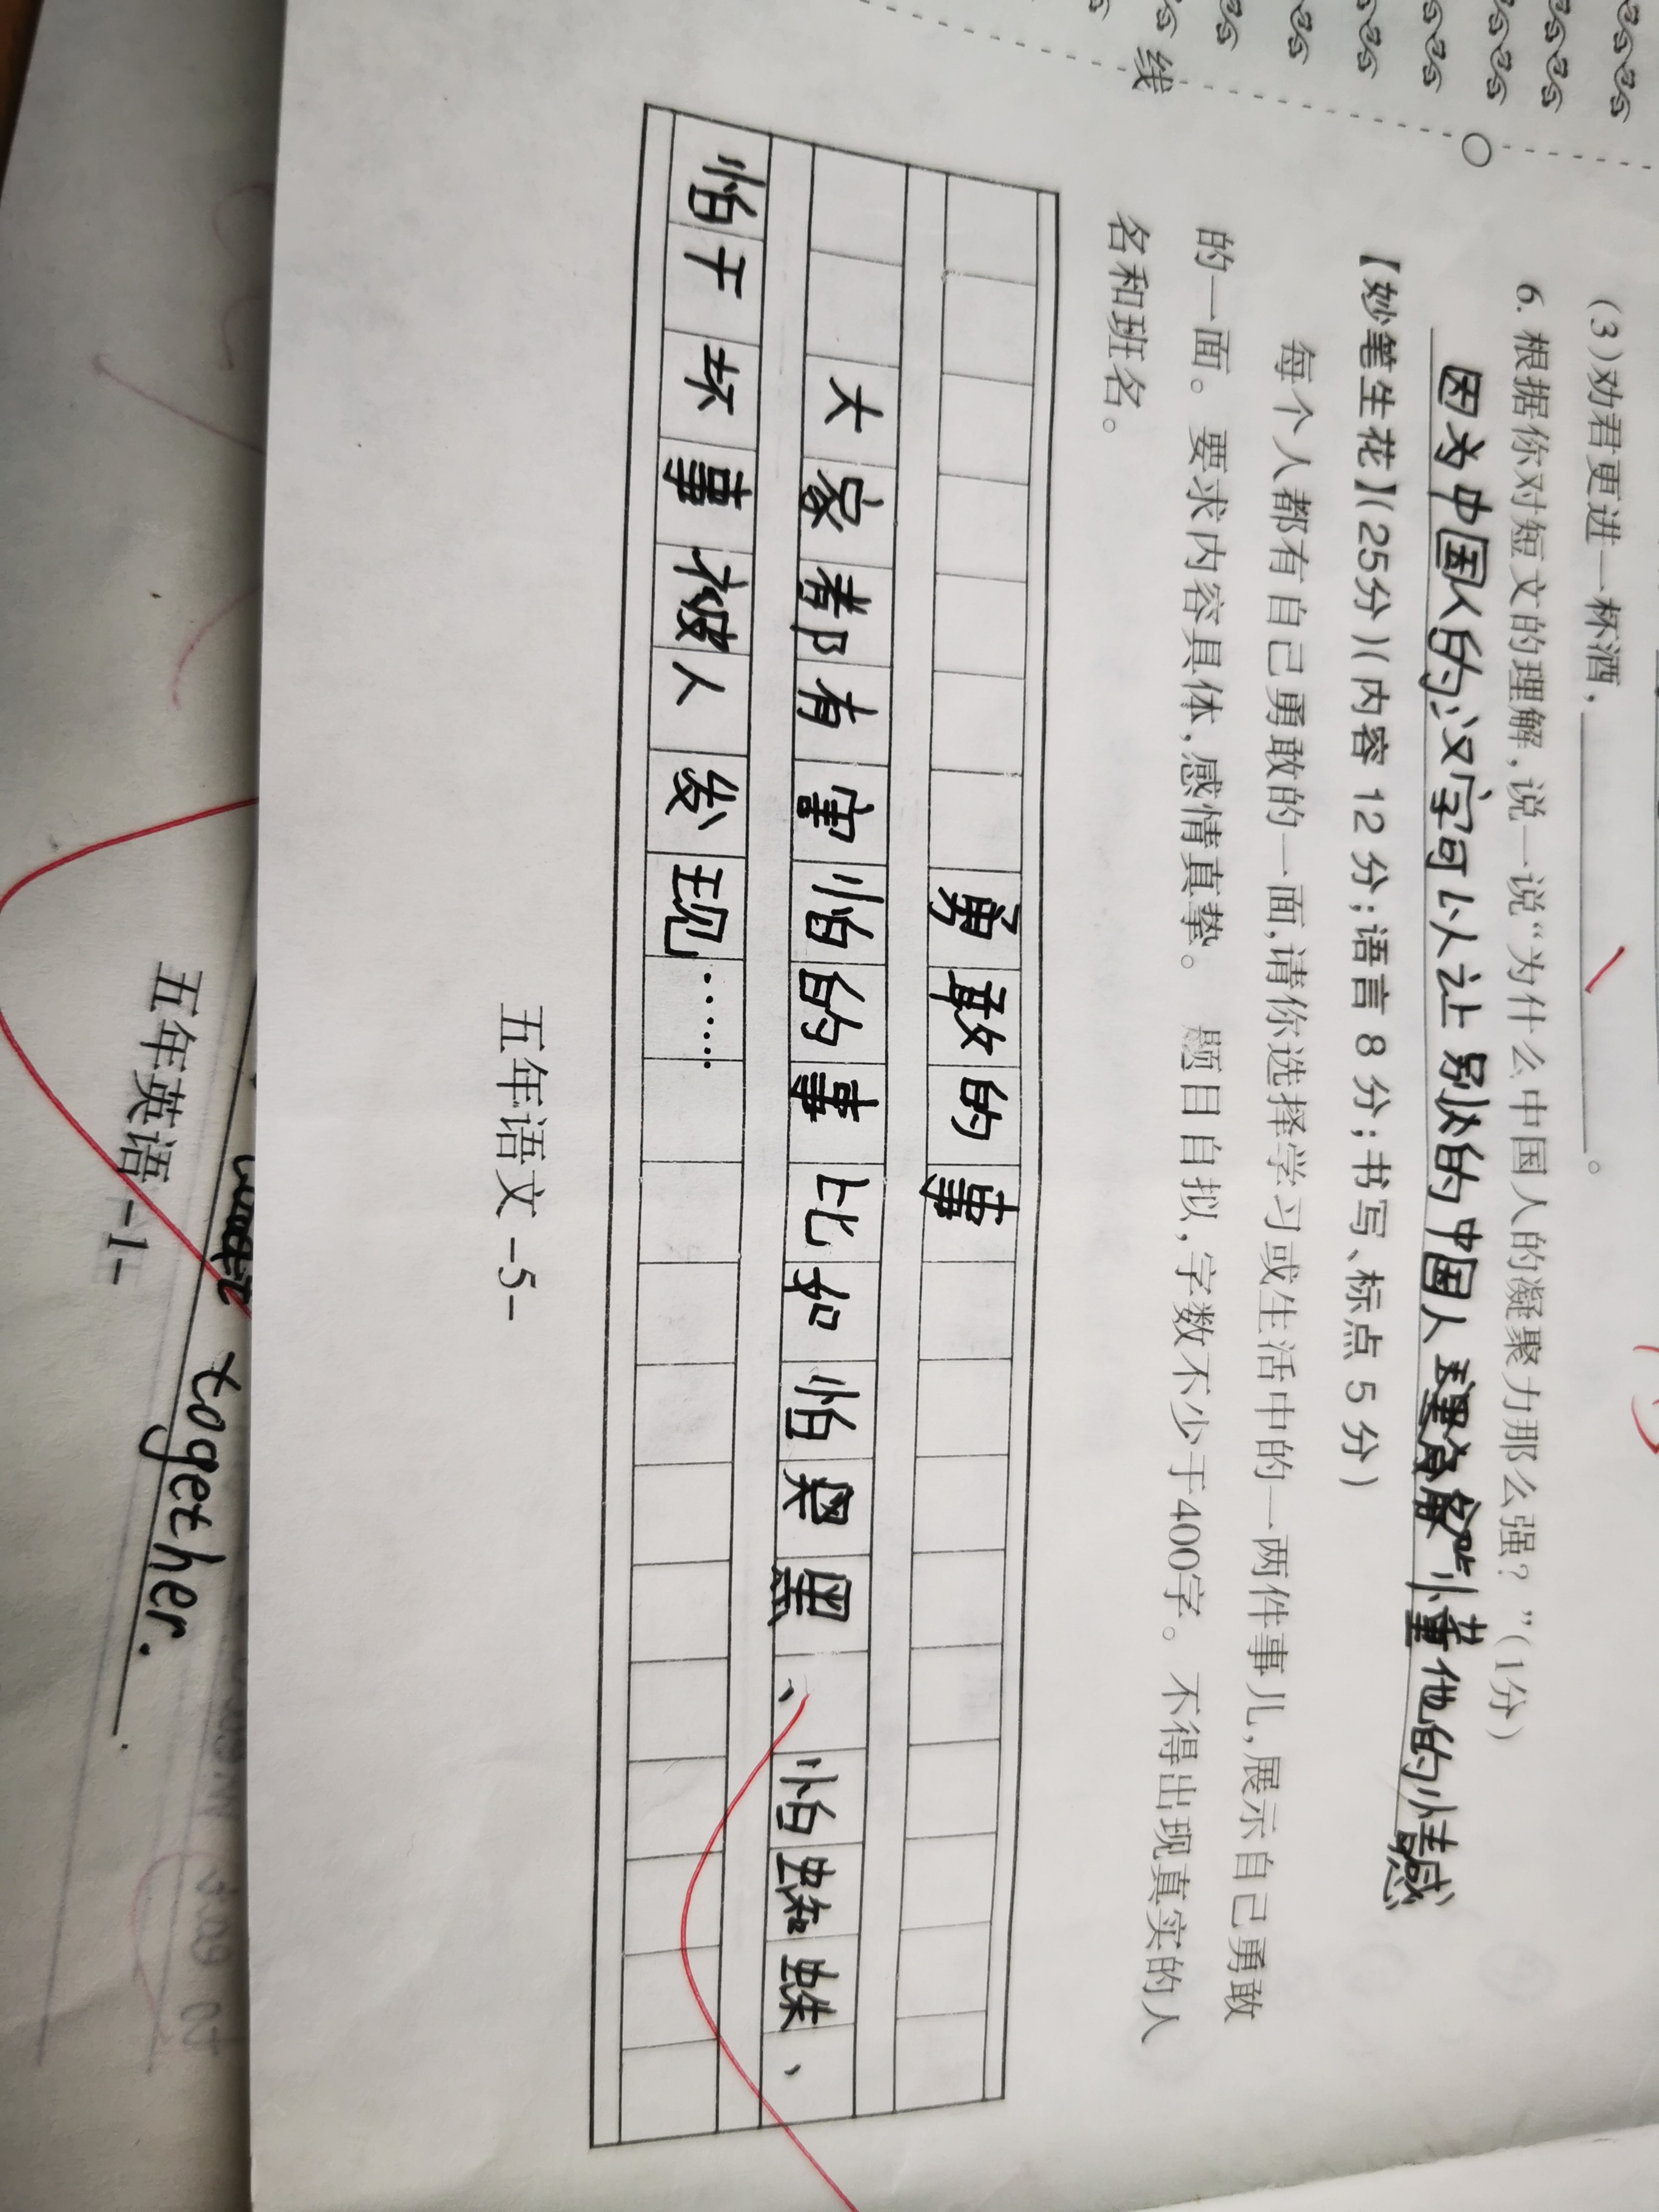 线
(3)劝君更进一杯酒，。
6. 根据你对短文的理解，说一说“为什么中国人的凝聚力那么强？”(1分)
因为中国人的汉字可以让别的中国人理解懂他的情感
【妙笔生花】(25分)(内容 12 分；语言 8 分；书写、标点 5 分)
每个人都有自己勇敢的一面，请你选择学习或生活中的一两件事儿，展示自己勇敢
的一面。要求内容具体，感情真挚。题目自拟，字数不少于400字。不得出现真实的人
名和班名。
勇敢的事
大家都有害怕的事比如怕黑、怕蜘蛛、
怕干坏事被人发现……
五年语文 -5-
together.
五年英语 -1-